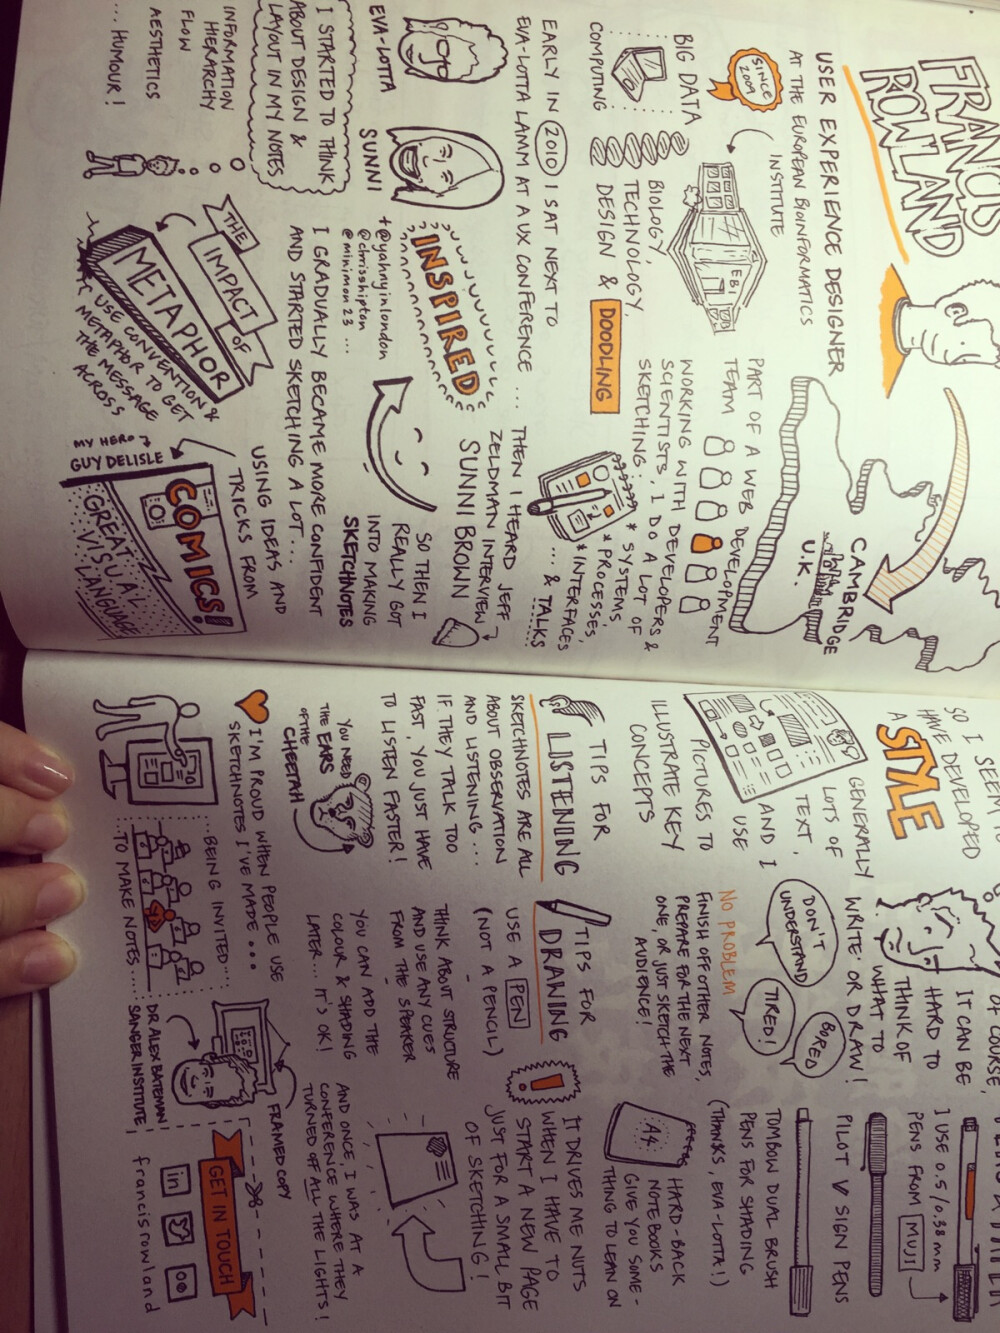 FRANCIS
ROWLAND
USER EXPERIENCE DESIGNER
AT THE EUROPEAN BIOINFORMATICS
INSTITUTE
SINCE
2009
EBI
CAMBRIDGE
U.K.
BIG DATA
COMPUTING
BIOLOGY,
TECHNOLOGY,
DESIGN &
DOODLING
PART OF A WEB DEVELOPMENT
TEAM
WORKING WITH DEVELOPERS &
SCIENTISTS, I DO A LOT OF
SKETCHING:
* SYSTEMS
* PROCESSES,
* INTERFACES
... & TALKS
EARLY IN 2010 I SAT NEXT TO
EVA-LOTTA LAMM AT A UX CONFERENCE ...
THEN I HEARD JEFF
ZELDMAN INTERVIEW
SUNNI BROWN
EVA-LOTTA
SUNNI
INSPIRED
+ @yahnyinlondon
@chrisshipton
@minimon23 ...
SO THEN I
REALLY GOT
INTO MAKING
SKETCHNOTES
I GRADUALLY BECAME MORE CONFIDENT
AND STARTED SKETCHING A LOT...
I STARTED TO THINK
ABOUT DESIGN &
LAYOUT IN MY NOTES
INFORMATION
HIERARCHY
FLOW
AESTHETICS
... HUMOUR!
THE
IMPACT
OF
METAPHOR
USE CONVENTION &
METAPHOR TO GET
THE MESSAGE
ACROSS
USING IDEAS AND
TRICKS FROM
COMICS!
MY HERO
GUY DELISLE
GREAT
VISUAL
LANGUAGE
SO I SEEM
HAVE DEVELOPED
A STYLE
GENERALLY
LOTS OF
TEXT,
AND I
USE
PICTURES TO
ILLUSTRATE KEY
CONCEPTS
OF COURSE,
IT CAN BE
HARD TO
THINK OF
WHAT TO
WRITE OR DRAW!
DON'T
UNDERSTAND
TIRED!
BORED
NO PROBLEM
FINISH OFF OTHER NOTES,
PREPARE FOR THE NEXT
ONE, OR JUST SKETCH THE
AUDIENCE!
I USE 0.5/0.38mm
PENS FROM MUJI
PILOT V SIGN PENS
TOMBOW DUAL BRUSH
PENS FOR SHADING
(THANKS, EVA-LOTTA!)
A4
HARD-BACK
NOTEBOOKS
GIVE YOU SOME-
THING TO LEAN ON
TIPS FOR
LISTENING
SKETCHNOTES ARE ALL
ABOUT OBSERVATION
AND LISTENING ...
IF THEY TALK TOO
FAST, YOU JUST HAVE
TO LISTEN FASTER!
YOU NEED
THE EARS
OF THE
CHEETAH
TIPS FOR
DRAWING
USE A PEN
(NOT A PENCIL)
THINK ABOUT STRUCTURE
AND USE ANY CUES
FROM THE SPEAKER
YOU CAN ADD THE
COLOUR & SHADING
LATER... IT'S OK!
!
IT DRIVES ME NUTS
WHEN I HAVE TO
START A NEW PAGE
JUST FOR A SMALL BIT
OF SKETCHING!
AND ONCE, I WAS AT A
CONFERENCE WHERE THEY
TURNED OFF ALL THE LIGHTS!
I'M PROUD WHEN PEOPLE USE
SKETCHNOTES I'VE MADE ...
... BEING INVITED ...
... TO MAKE NOTES ...
FRAMED COPY
DR ALEX BATEMAN
SANGER INSTITUTE
GET IN TOUCH
in
francisrowland